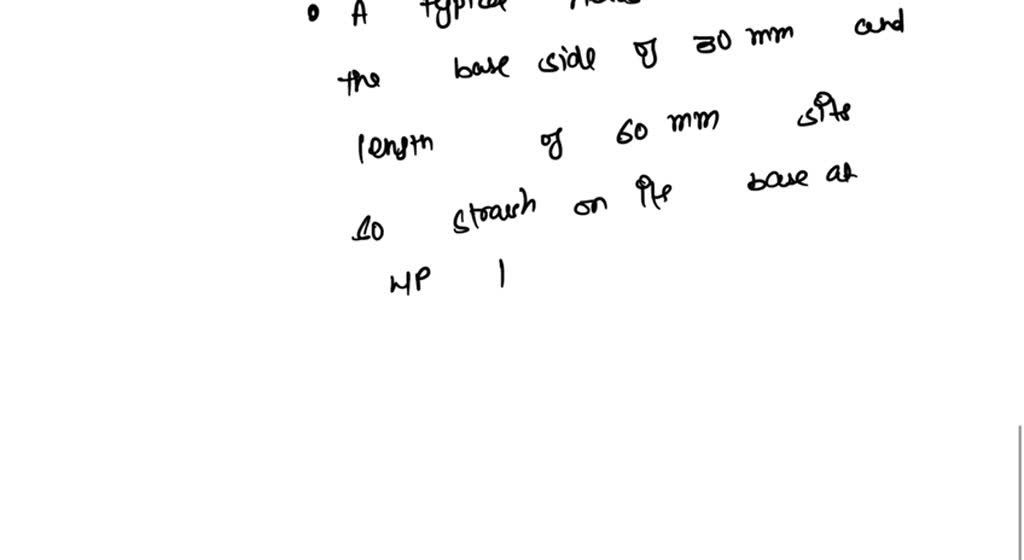 A typical
the base side of 30 mm and
length of 60 mm sits
so straish on its base at
HP |